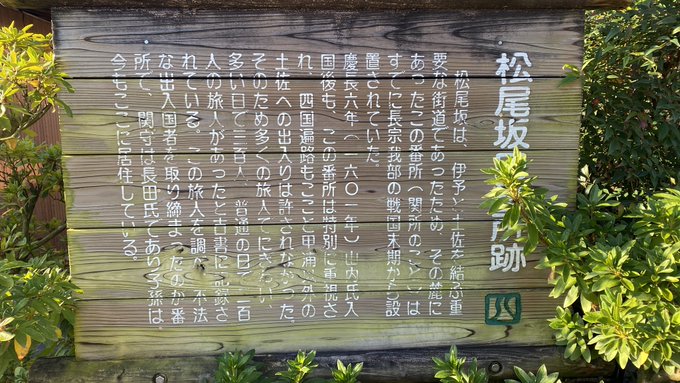 松尾坂 所跡
松尾坂は、伊予と土佐を結ぶ重
要な街道であったため、その麓に
あったこの番所(関所のこと)は
すでに長宗我部の戦国末期から設
置されていた。
慶長六年(一六〇一年)山内氏入
国後も、この番所は特別に重視さ
れ、四国遍路もここと甲浦以外の
土佐への出入りは許されなかった。
そのため多くの旅人でにぎわい
多い日で三百人、普通の日で二百
人の旅人があったと古書に記録さ
れている。この旅人を調べ、不法
な出入国者を取り締まったのが番
所で、関守は長田氏であり子孫は、
今もここに居住している。